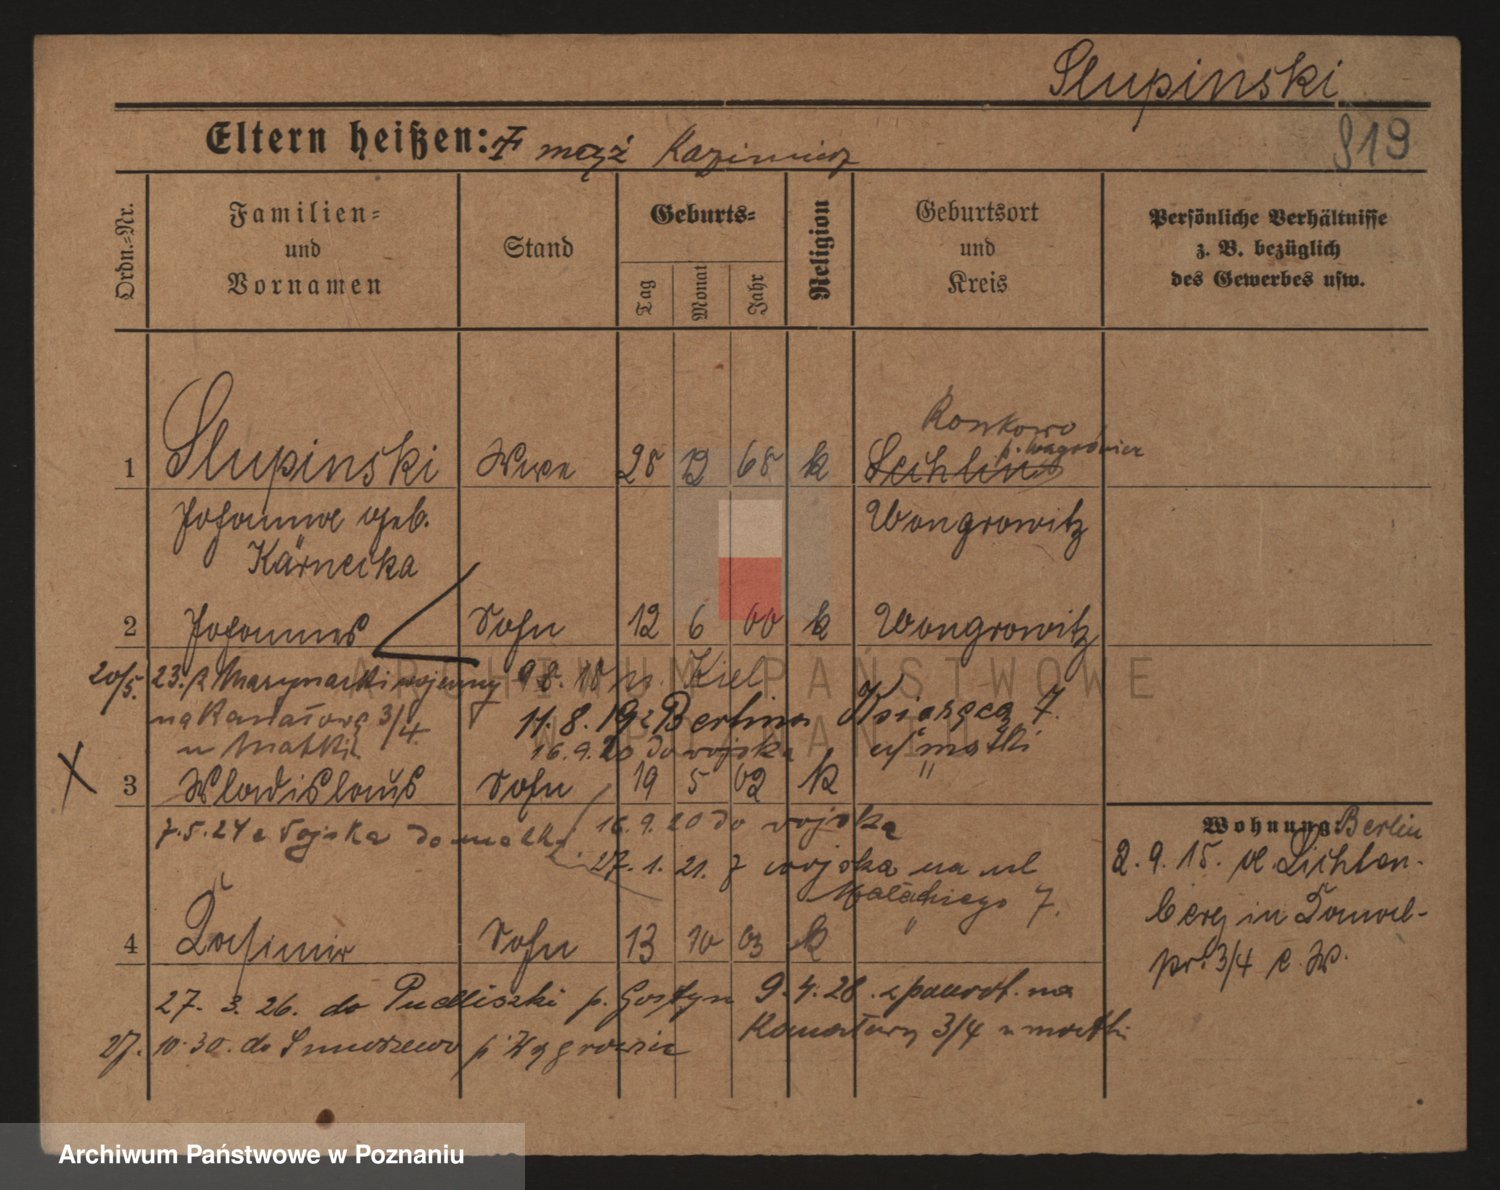 Slupinski
819
Eltern heißen: † mąż Kazimierz
Ordn.-Nr.
Familien-
und
Vornamen
Stand
Geburts-
Tag
Monat
Jahr
Religion
Geburtsort
und
Kreis
Persönliche Verhältnisse
z. B. bezüglich
des Gewerbes usw.
Ronkowo
p. Wągrówiec
1 Slupinski Wwe 28 12 68 k Lechlin
Johanna geb. Wongrowitz
Kärnecka
2 Johannes Sohn 12 6 00 k Wongrowitz
20/5. 23. z Marynarki wojenny 9 8. 18 n. Kiel
na Kanałowę 3/4. 11. 8. 19 z Berlina Książęca 7.
u Matki 16. 9. 20 do wojska u matki
3 Wladislaus Sohn 19 5 02 k "
7. 5. 24 z Wojska do matki 16. 9. 20 do wojska
27. 1. 21. z wojska na ul
Małackiego 7.
Wohnung: Berlin
2. 9. 15. Lichten-
berg in Kanal-
str. 3/4 b. W.
4 Kasimir Sohn 13 10 03 k "
27. 3. 26. do Pudliszki p. Gostyn 9. 4. 28. z powrot. na
Kanałowy 3/4 u matki
27. 10. 30. do Smuszewo p. Wągrowiec
ARCHIWUM PAŃSTWOWE
W POZNANIU
Archiwum Państwowe w Poznaniu